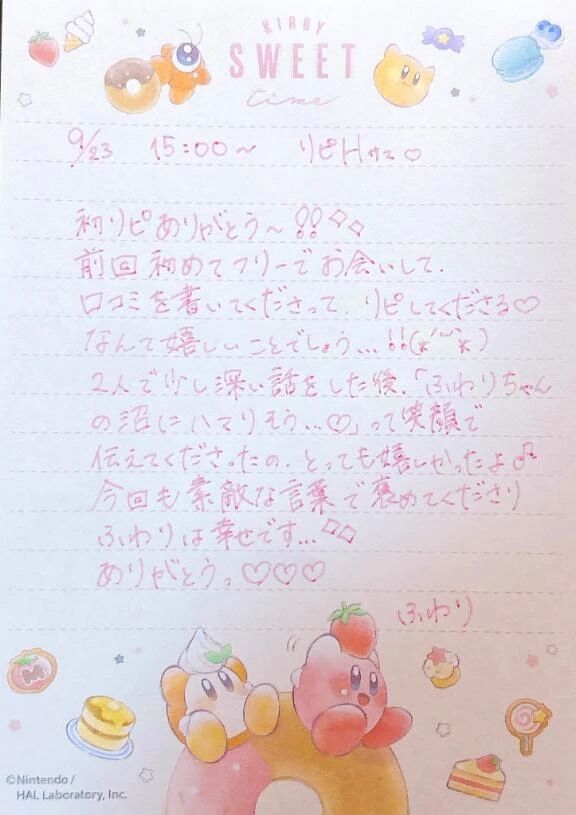 KIRBY
SWEET
time
9/23 15:00〜 リピHサマ♡
初リピありがとう〜!!
前回初めてフリーでお会いして、
口コミを書いてくださって、リピしてくださる♡
なんて嬉しいことでしょう...!!(*´˘`*)
2人で少し深い話をした後、「ふわりちゃん
の沼にハマりそう...♡」って笑顔で
伝えてくださったの、とっても嬉しかったよ♫
今回も素敵な言葉で褒めてくださり
ふわりは幸せです...
ありがとうっ♡♡♡
ふわり
©Nintendo /
HAL Laboratory, Inc.